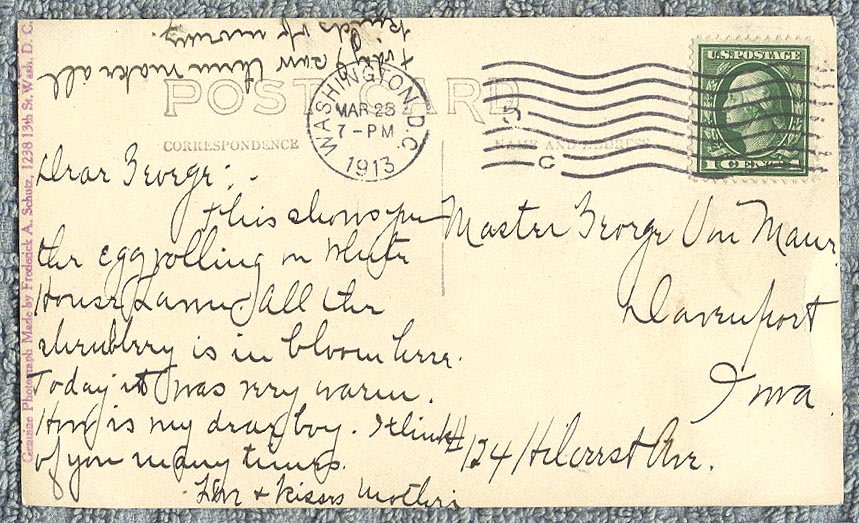 today saw them make all
kinds of money.
POST CARD
WASHINGTON, D.C.
MAR 23
7-PM
1913
U.S. POSTAGE
1 CENT 1
C
CORRESPONDENCE
NAME AND ADDRESS
Genuine Photograph Made by Frederick A. Schutz, 1238 13th St. Wash. D. C.
Dear George: -
This shows you
the egg rolling on White
House Lawn. All the
shrubbery is in bloom here.
Today it was very warm.
How is my dear boy. I think
of you many times.
Love + kisses Mother
Master George Von Maur.
Davenport
Iowa.
#124 Hilcrest Ave.